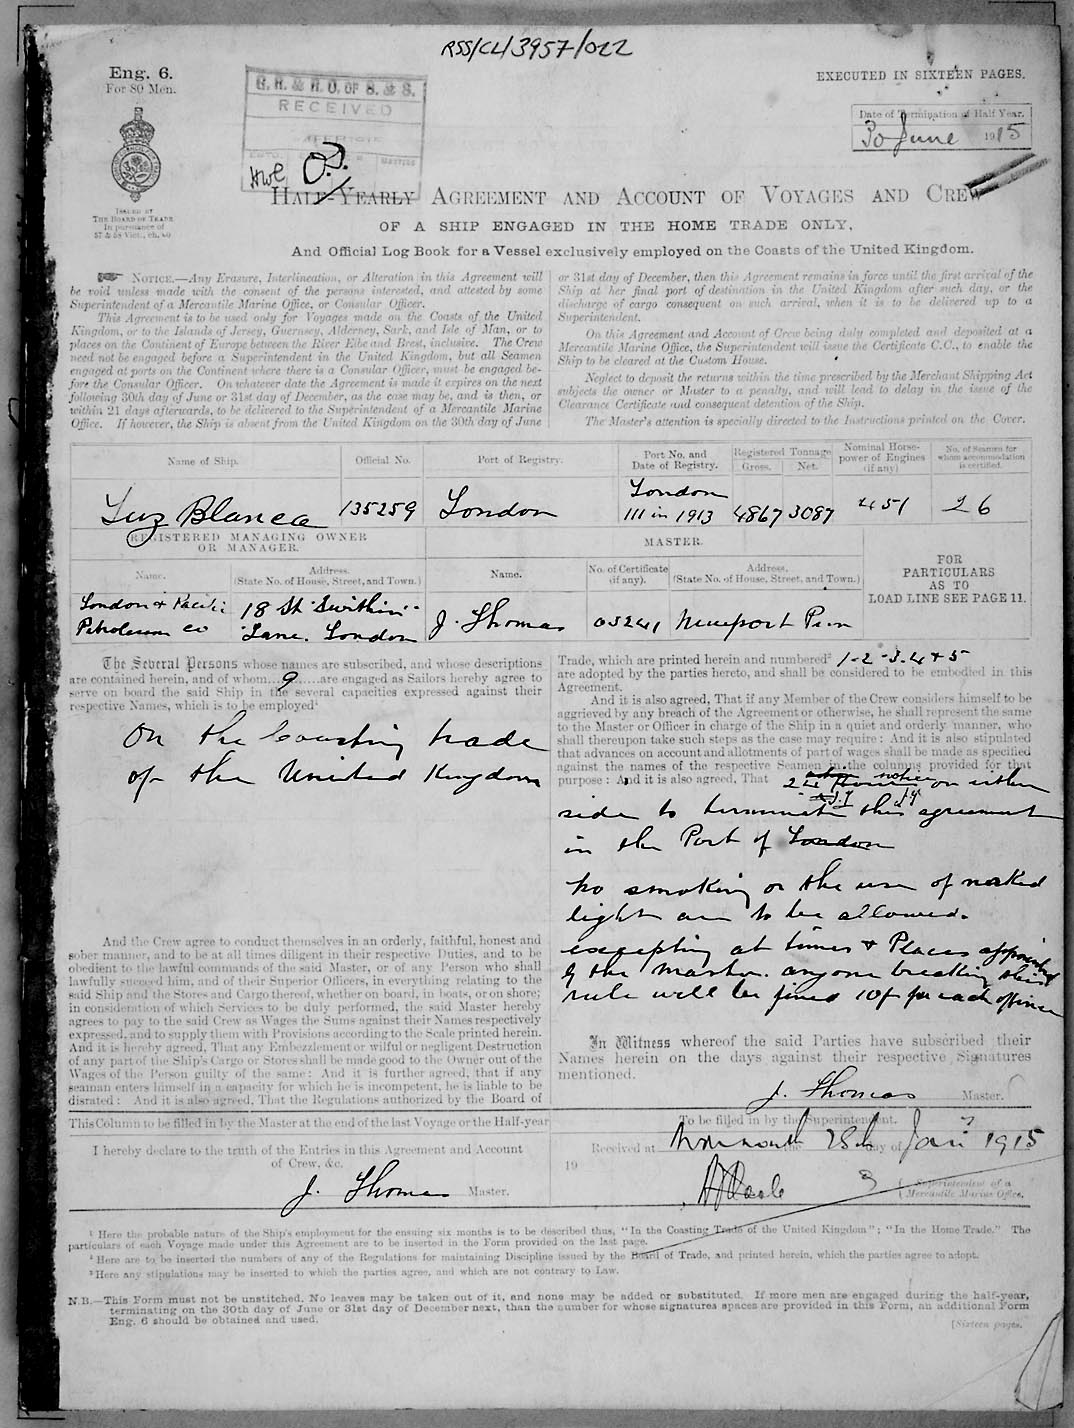 RSS/CL/3957/022
Eng. 6.
For 80 Men.
EXECUTED IN SIXTEEN PAGES.
G. R. & R. O. OF S. & S.
RECEIVED
Date of Termination of Half Year.
30 June 1915
ISSUED BY
THE BOARD OF TRADE
In pursuance of
57 & 58 Vict., ch. 60
HALF-YEARLY AGREEMENT AND ACCOUNT OF VOYAGES AND CREW
OF A SHIP ENGAGED IN THE HOME TRADE ONLY,
And Official Log Book for a Vessel exclusively employed on the Coasts of the United Kingdom.
NOTICE.—Any Erasure, Interlineation, or Alteration in this Agreement will
be void unless made with the consent of the persons interested, and attested by some
Superintendent of a Mercantile Marine Office, or Consular Officer.
This Agreement is to be used only for Voyages made on the Coasts of the United
Kingdom, or to the Islands of Jersey, Guernsey, Alderney, Sark, and Isle of Man, or to
places on the Continent of Europe between the River Elbe and Brest, inclusive. The Crew
need not be engaged before a Superintendent in the United Kingdom, but all Seamen
engaged at ports on the Continent where there is a Consular Officer, must be engaged be-
fore the Consular Officer. On whatever date the Agreement is made it expires on the next
following 30th day of June or 31st day of December, as the case may be, and is then, or
within 21 days afterwards, to be delivered to the Superintendent of a Mercantile Marine
Office. If however, the Ship is absent from the United Kingdom on the 30th day of June
or 31st day of December, then this Agreement remains in force until the first arrival of the
Ship at her final port of destination in the United Kingdom after such day, or the
discharge of cargo consequent on such arrival, when it is to be delivered up to a
Superintendent.
On this Agreement and Account of Crew being duly completed and deposited at a
Mercantile Marine Office, the Superintendent will issue the Certificate C.C., to enable the
Ship to be cleared at the Custom House.
Neglect to deposit the returns within the time prescribed by the Merchant Shipping Act
subjects the owner or Master to a penalty, and will lead to delay in the issue of the
Clearance Certificate and consequent detention of the Ship.
The Master's attention is specially directed to the Instructions printed on the Cover.
Name of Ship. Official No. Port of Registry. Port No. and Date of Registry. Registered Tonnage Gross. Net. Nominal Horse-power of Engines (if any) No. of Seamen for whom accommodation is certified.
Luz Blanca 135259 London London 111 in 1913 4867 3087 451 26
REGISTERED MANAGING OWNER
OR MANAGER.
MASTER.
FOR
PARTICULARS
AS TO
LOAD LINE SEE PAGE 11.
Name. Address. (State No. of House, Street, and Town.) Name. No. of Certificate (if any). Address. (State No. of House, Street, and Town.)
London & Pacific 18 St Swithin's
Petroleum Co Lane. London J. Thomas 05241 Newport Pem
The Several Persons whose names are subscribed, and whose descriptions
are contained herein, and of whom 9 are engaged as Sailors hereby agree to
serve on board the said Ship in the several capacities expressed against their
respective Names, which is to be employed¹
On the Coasting trade
of the United Kingdom
And the Crew agree to conduct themselves in an orderly, faithful, honest and
sober manner, and to be at all times diligent in their respective Duties, and to be
obedient to the lawful commands of the said Master, or of any Person who shall
lawfully succeed him, and of their Superior Officers, in everything relating to the
said Ship and the Stores and Cargo thereof, whether on board, in boats, or on shore;
in consideration of which Services to be duly performed, the said Master hereby
agrees to pay to the said Crew as Wages the Sums against their Names respectively
expressed, and to supply them with Provisions according to the Scale printed herein.
And it is hereby agreed, That any Embezzlement or wilful or negligent Destruction
of any part of the Ship's Cargo or Stores shall be made good to the Owner out of the
Wages of the Person guilty of the same: And it is further agreed, that if any
seaman enters himself in a capacity for which he is incompetent, he is liable to be
disrated: And it is also agreed, That the Regulations authorized by the Board of
Trade, which are printed herein and numbered² 1-2-3-4 & 5
are adopted by the parties hereto, and shall be considered to be embodied in this
Agreement.
And it is also agreed, That if any Member of the Crew considers himself to be
aggrieved by any breach of the Agreement or otherwise, he shall represent the same
to the Master or Officer in charge of the Ship in a quiet and orderly manner, who
shall thereupon take such steps as the case may require: And it is also stipulated
that advances on account and allotments of part of wages shall be made as specified
against the names of the respective Seamen in the columns provided for that
purpose: And it is also agreed, That 24 hours notice on either
side to terminate this agreement
in the Port of London
No smoking or the use of naked
light are to be allowed.
excepting at times & Places appointed
by the Master. anyone breaking this
rule will be fined 10/- for each offence
In Witness whereof the said Parties have subscribed their
Names herein on the days against their respective Signatures
mentioned.
J. Thomas Master.
This Column to be filled in by the Master at the end of the last Voyage or the Half-year
I hereby declare to the truth of the Entries in this Agreement and Account
of Crew, &c.
J. Thomas Master.
To be filled in by the Superintendent.
19
Received at 28th day of Jan 1915
Superintendent of a
Mercantile Marine Office.
¹ Here the probable nature of the Ship's employment for the ensuing six months is to be described thus, "In the Coasting Trade of the United Kingdom"; "In the Home Trade." The
particulars of each Voyage made under this Agreement are to be inserted in the Form provided on the last page.
² Here are to be inserted the numbers of any of the Regulations for maintaining Discipline issued by the Board of Trade, and printed herein, which the parties agree to adopt.
³ Here any stipulations may be inserted to which the parties agree, and which are not contrary to Law.
N.B.—This Form must not be unstitched. No leaves may be taken out of it, and none may be added or substituted. If more men are engaged during the half-year,
terminating on the 30th day of June or 31st day of December next, than the number for whose signatures spaces are provided in this Form, an additional Form
Eng. 6 should be obtained and used.
[Sixteen pages.